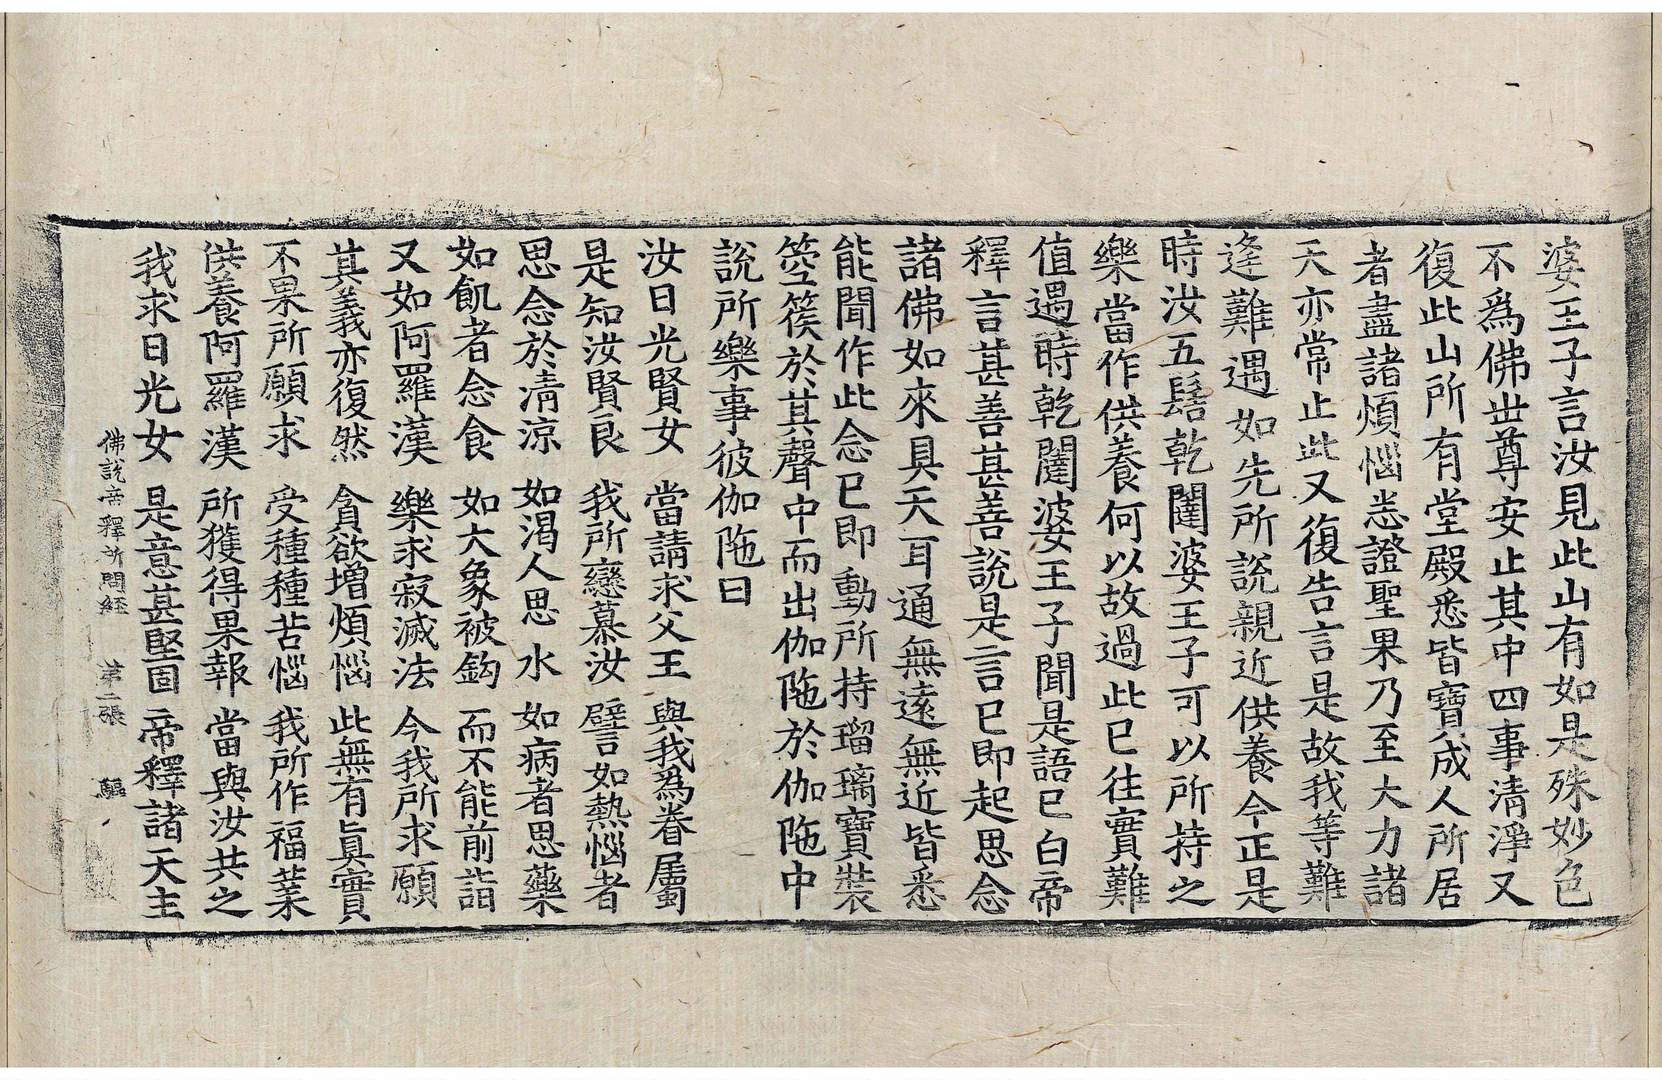 婆王子言汝見此山有如是殊妙色
不爲佛世尊安止其中四事清淨又
復此山所有堂殿悉皆寶成人所居
者盡諸煩惱悉證聖果乃至大力諸
天亦常止此又復告言是故我等難
逢難遇如先所說親近供養今正是
時汝五髻乾闥婆王子可以所持之
樂當作供養何以故過此已往實難
值遇時乾闥婆王子聞是語已白帝
釋言甚善甚善說是言已即起思念
諸佛如來具天耳通無遠無近皆悉
能聞作此念已即動所持瑠璃寶裝
箜篌於其聲中而出伽陁於伽陁中
說所樂事彼伽陁曰
汝日光賢女　當請求父王　與我為眷屬
是知汝賢良　我所戀慕汝　譬如熱惱者
思念於清涼　如渴人思水　如病者思藥
如飢者念食　如大象被鈎　而不能前詣
又如阿羅漢　樂求寂滅法　今我所求願
其義亦復然　貪欲增煩惱　此無有眞實
不果所願求　受種種苦惱　我所作福業
供養阿羅漢　所獲得果報　當與汝共之
我求日光女　是意甚堅固　帝釋諸天主
佛說帝釋所問經　第二張　驅